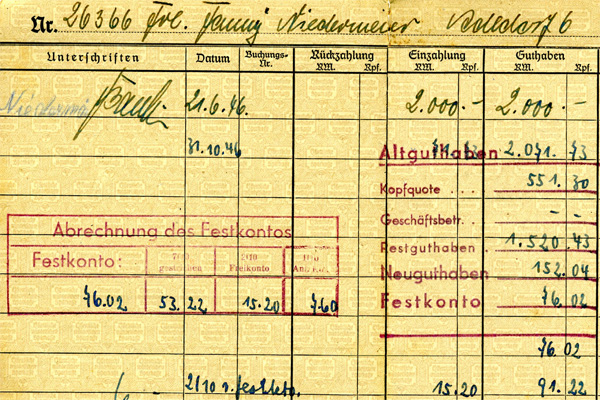 Nr. 26366 Frl. Fanny Niedermeier Adldorf 6
Unterschriften Datum Buchungs-Nr. Rückzahlung RM. Rpf. Einzahlung RM. Rpf. Guthaben RM. Rpf.
21.6.46. 2.000.- 2.000.-
31.10.46 71.73
Altguthaben 2.071.73
Kopfquote .... 551.30
Geschäftsbetr. . - -
Restguthaben .. 1.520.43
Neuguthaben 152.04
Festkonto 76.02
Abrechnung des Festkontos
Festkonto: 7/10 gestrichen 2/10 Freikonto 1/10 Anl. Kto.
76.02 53.22 15.20 7.60
76.02
2/10 v. 15.20 91.22